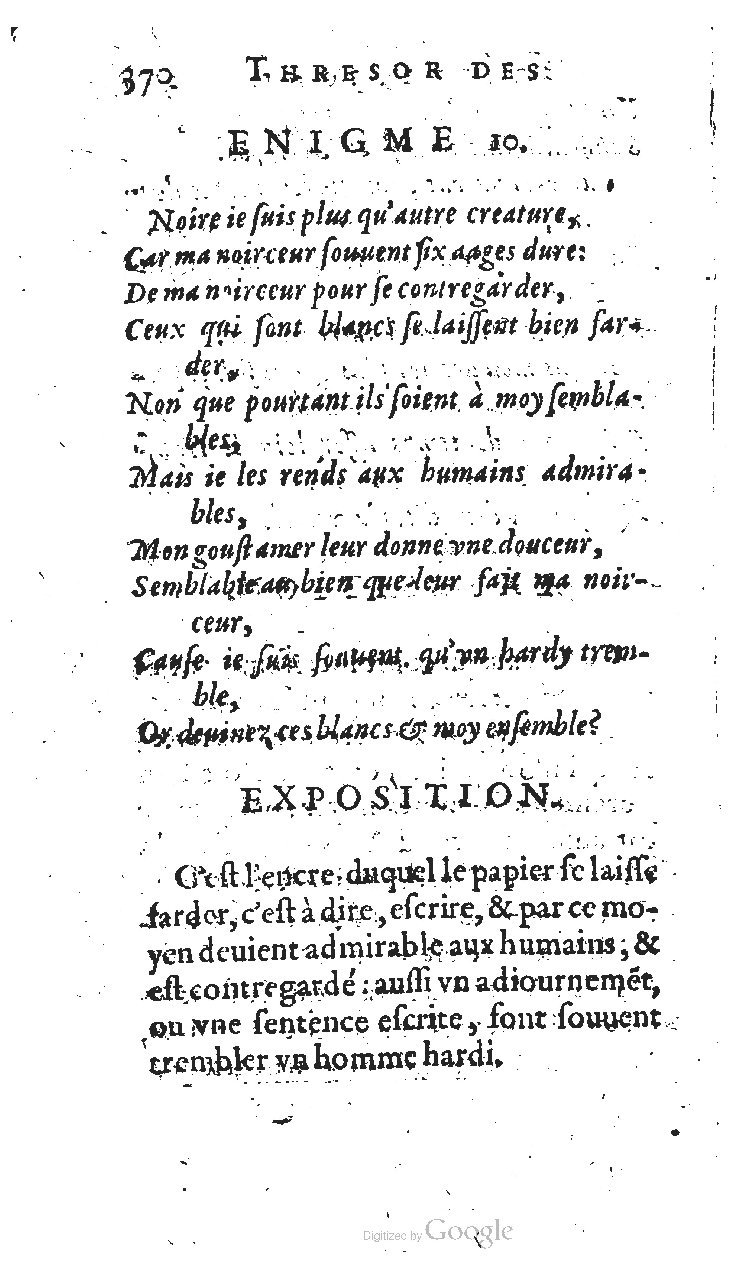 370 THRESOR DES
ENIGME 10.
Noire ie ſuis plus qu'autre creature,
Car ma noirceur ſouuent ſix aages dure:
De ma noirceur pour ſe contregarder,
Ceux qui ſont blancs ſe laiſſent bien far-
der,
Non que pourtant ils ſoient à moy ſembla-
bles,
Mais ie les rends aux humains admira-
bles,
Mon gouſt amer leur donne vne douceur,
Semblable auſſi bien que leur fait ma noir-
ceur,
Cauſe ie ſuis ſouuent qu'vn hardy trem-
ble,
Or deuinez ces blancs & moy enſemble?
EXPOSITION.
C'eſt l'encre, duquel le papier ſe laiſſe
farder, c'eſt à dire, eſcrire, & par ce mo-
yen deuient admirable aux humains; &
eſt contregardé: auſſi vn adiournemẽt,
ou vne ſentence eſcrite, font ſouuent
trembler vn homme hardi.
Digitized by Google